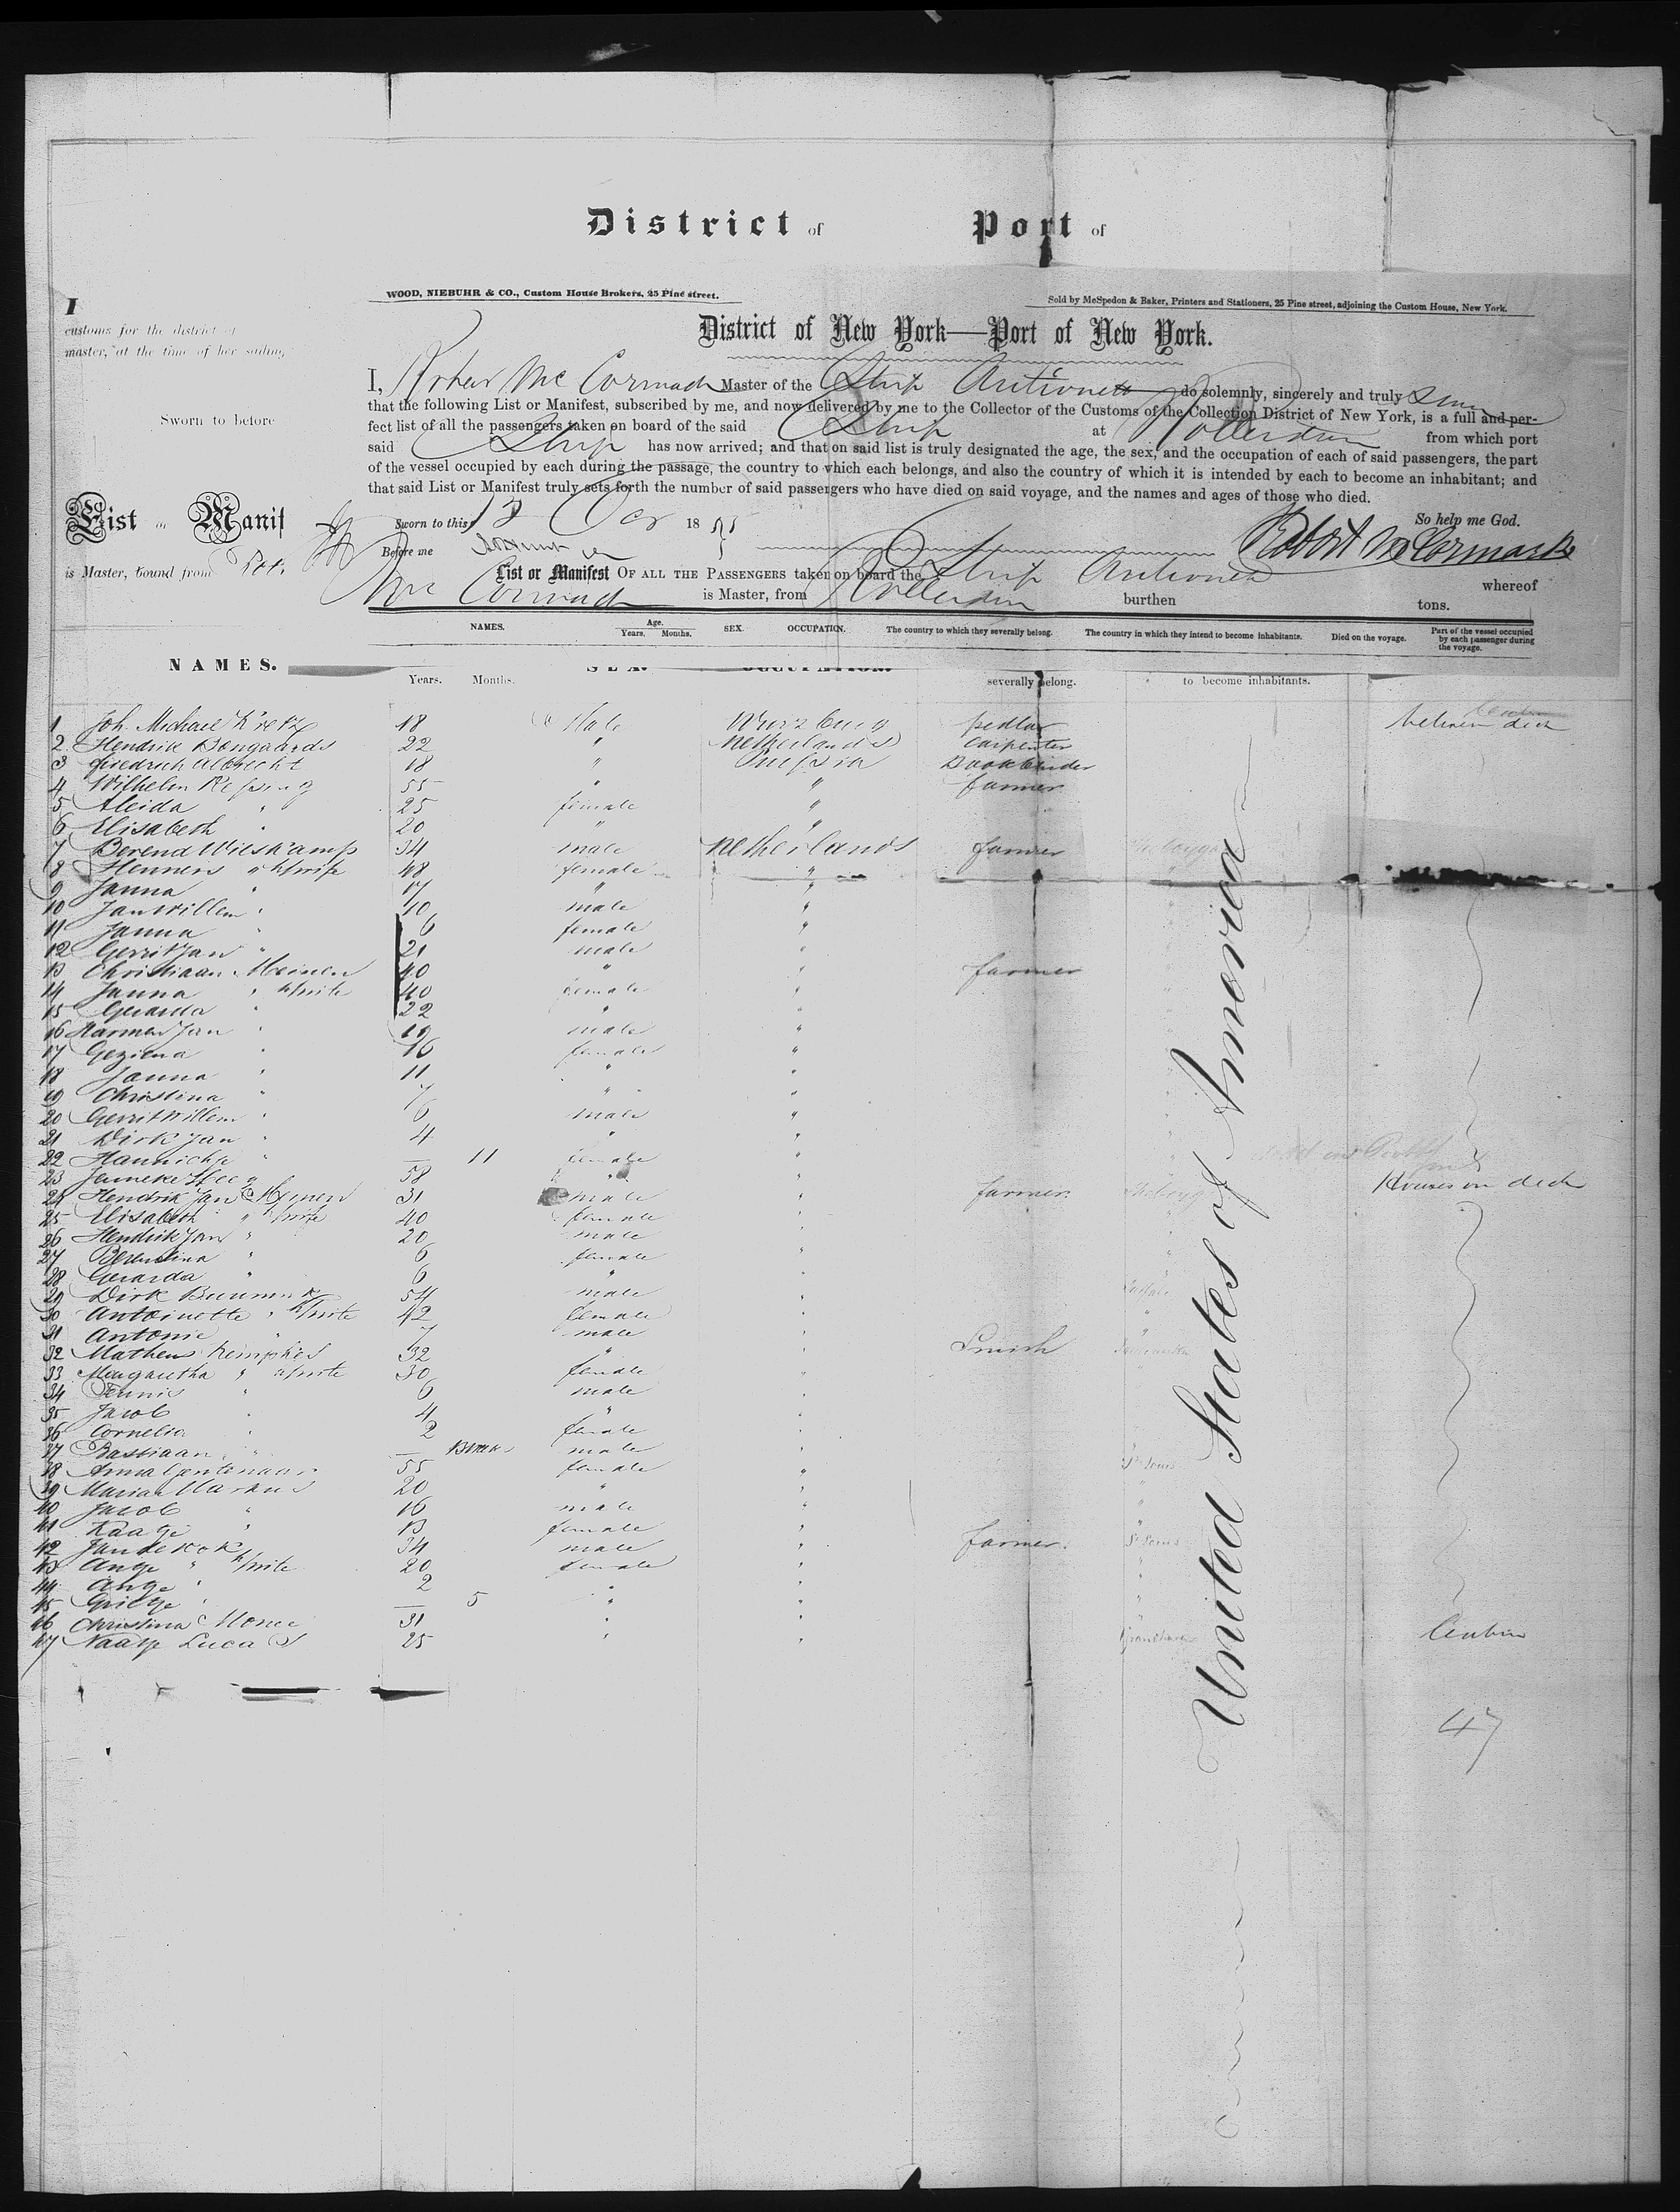 District of Port of
WOOD, NIEBUHR & CO., Custom House Brokers, 25 Pine street.
Sold by McSpedon & Baker, Printers and Stationers, 25 Pine street, adjoining the Custom House, New York.
I
customs for the district of
master, at the time of her sailing
Sworn to before
List or Manif
is Master, bound from Rott
District of New York—Port of New York.
I, Robert Mc Cormack Master of the Ship Antionett do solemnly, sincerely and truly
that the following List or Manifest, subscribed by me, and now delivered by me to the Collector of the Customs of the Collection District of New York, is a full and per-
fect list of all the passengers taken on board of the said Ship at Rotterdam from which port
said Ship has now arrived; and that on said list is truly designated the age, the sex, and the occupation of each of said passengers, the part
of the vessel occupied by each during the passage, the country to which each belongs, and also the country of which it is intended by each to become an inhabitant; and
that said List or Manifest truly sets forth the number of said passengers who have died on said voyage, and the names and ages of those who died.
So help me God.
Sworn to this 13 Oct 18
Before me
Robert McCormack
List or Manifest OF ALL THE PASSENGERS taken on board the Ship Antionett whereof
Mc Cormack is Master, from Rotterdam burthen tons.
NAMES. Age. Years. Months. SEX. OCCUPATION. The country to which they severally belong. The country in which they intend to become inhabitants. Died on the voyage. Part of the vessel occupied by each passenger during the voyage.
NAMES. Years. Months. SEX. OCCUPATION. severally belong. to become inhabitants.
1 Joh. Michael 18 Male pedlar between deck
2 Hendrik Bongaards 22 " Netherlands Carpenter
3 Friedrich Albrecht 18 " Prussia Bookbinder
4 Wilhelm 55 " farmer
5 Aleida " 25 female "
6 Elisabeth " 20 " "
7 Berend Wieskamp 34 male Netherlands farmer
8 " wife 48 female "
9 Janna " 17 " "
10 Jan Willem " 10 male "
11 Janna " 6 female "
12 Gerrit Jan " 21 male "
13 Christiaan Meinen 40 " " farmer
14 Janna " wife 40 female "
15 Gerarda " 22 " "
16 Harmen Jan " 19 male "
17 Geziena " 16 female "
18 Janna " 11 " "
19 Christina " 7 " "
20 Gerrit Willem " 6 male "
21 Dirk Jan " 4 " "
22 " — 11 female "
23 Janneke 58 " "
24 Hendrik Jan Meinen 31 male " farmer Houses on deck
25 Elisabeth " wife 40 female "
26 Hendrik Jan " 20 male "
27 Berendina " 6 female "
28 Gerarda " 6 " "
29 Dirk 54 male "
30 Antoinette " wife 42 female "
31 Antonie " 7 male "
32 Matheus Kempkes 32 " " Smith
33 Margaretha " wife 30 female "
34 Teunis " 6 male "
35 Jacob " 4 " "
36 Cornelia " 2 female "
37 Bastiaan " — male "
38 Anna 55 female "
39 Maria Markus 20 " "
40 Jacob " 16 male "
41 " 13 female "
42 Jan de Kok 34 male " farmer St Louis
43 Antje " wife 20 female "
44 Antje " 2 " "
45 Grietje " — 5 " "
46 Christina 31 " "
47 Naatje Lucas 25 " "
United States of America
47